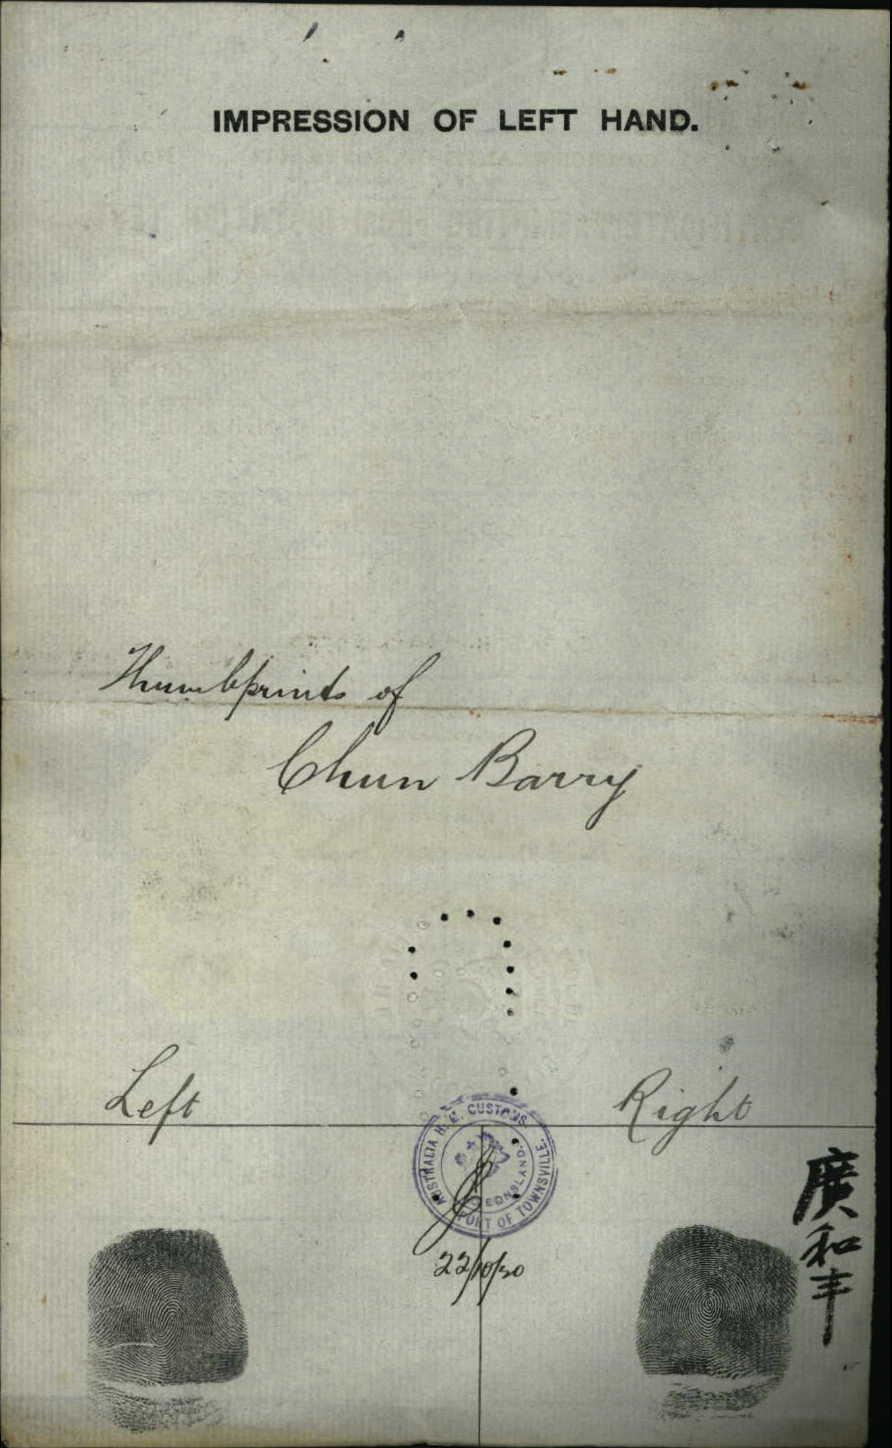 IMPRESSION OF LEFT HAND.
Thumbprints of
Chun Barry
Left
Right
AUSTRALIA H. M. CUSTOMS
QUEENSLAND.
PORT OF TOWNSVILLE.
22/10/20
廣和丰